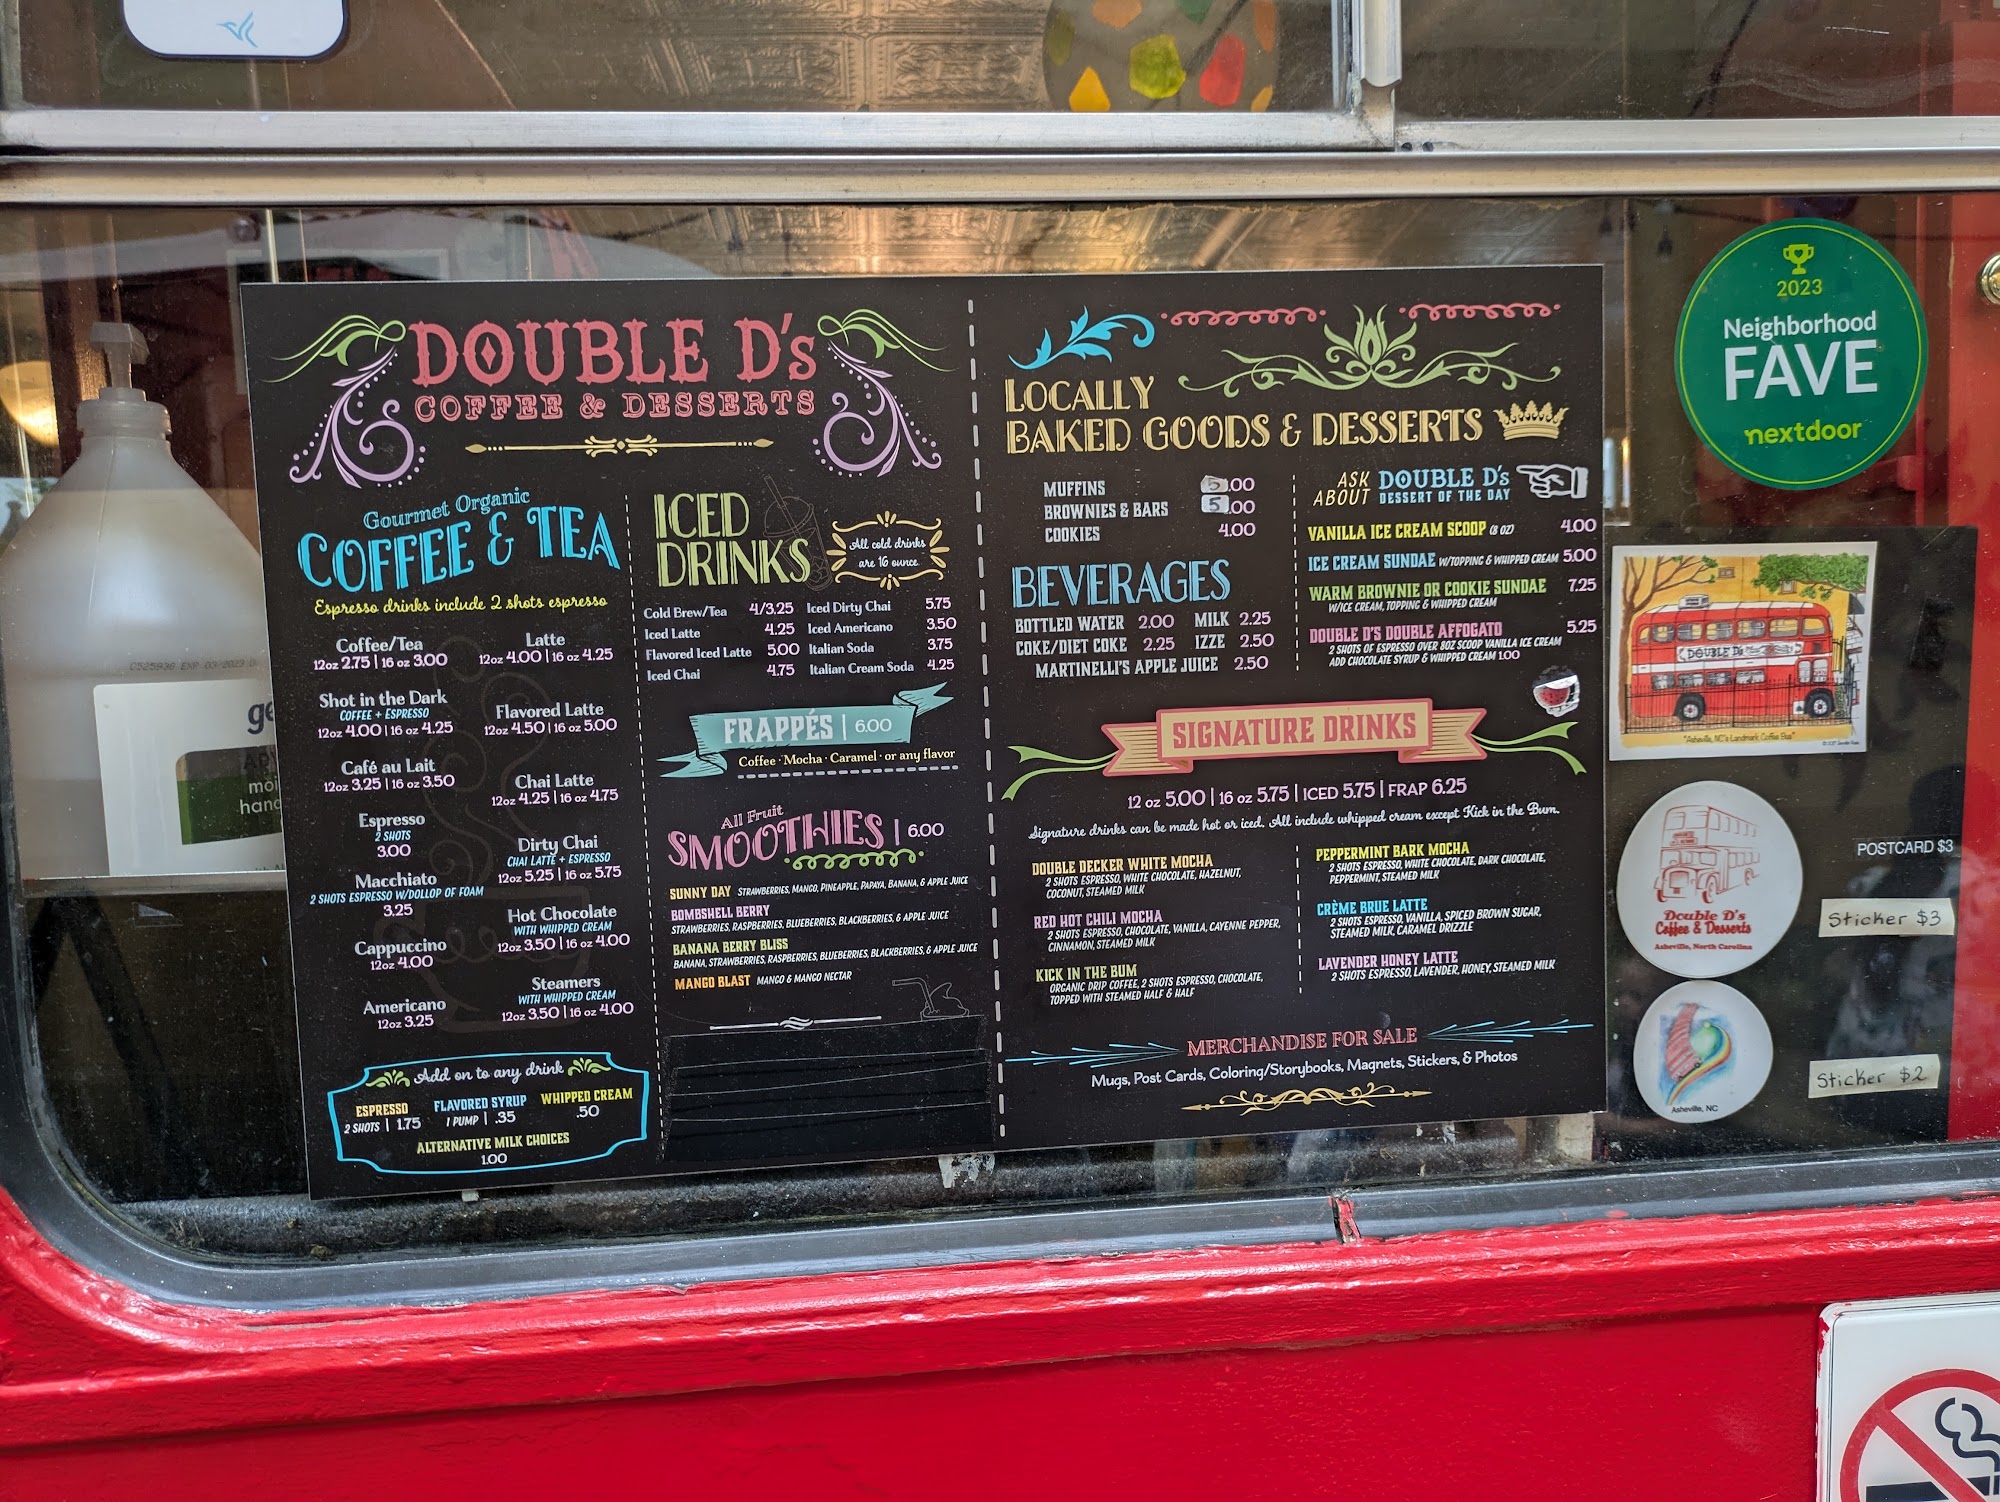 DOUBLE D's
COFFEE & DESSERTS
Gourmet Organic
COFFEE & TEA
Espresso drinks include 2 shots espresso
Coffee/Tea
12oz 2.75 | 16 oz 3.00
Shot in the Dark
COFFEE + ESPRESSO
12oz 4.00 | 16 oz 4.25
Café au Lait
12oz 3.25 | 16 oz 3.50
Espresso
2 SHOTS
3.00
Macchiato
2 SHOTS ESPRESSO W/DOLLOP OF FOAM
3.25
Cappuccino
12oz 4.00
Americano
12oz 3.25
Latte
12oz 4.00 | 16 oz 4.25
Flavored Latte
12oz 4.50 | 16 oz 5.00
Chai Latte
12oz 4.25 | 16 oz 4.75
Dirty Chai
CHAI LATTE + ESPRESSO
12oz 5.25 | 16 oz 5.75
Hot Chocolate
WITH WHIPPED CREAM
12oz 3.50 | 16 oz 4.00
Steamers
WITH WHIPPED CREAM
12oz 3.50 | 16 oz 4.00
Add on to any drink
ESPRESSO
2 SHOTS | 1.75
FLAVORED SYRUP
1 PUMP | .35
WHIPPED CREAM
.50
ALTERNATIVE MILK CHOICES
1.00
ICED
DRINKS
All cold drinks
are 16 ounce
Cold Brew/Tea 4/3.25
Iced Latte 4.25
Flavored Iced Latte 5.00
Iced Chai 4.75
Iced Dirty Chai 5.75
Iced Americano 3.50
Italian Soda 3.75
Italian Cream Soda 4.25
FRAPPÉS | 6.00
Coffee · Mocha · Caramel · or any flavor
All Fruit
SMOOTHIES | 6.00
SUNNY DAY STRAWBERRIES, MANGO, PINEAPPLE, PAPAYA, BANANA, & APPLE JUICE
BOMBSHELL BERRY
STRAWBERRIES, RASPBERRIES, BLUEBERRIES, BLACKBERRIES, & APPLE JUICE
BANANA BERRY BLISS
BANANA, STRAWBERRIES, RASPBERRIES, BLUEBERRIES, BLACKBERRIES, & APPLE JUICE
MANGO BLAST MANGO & MANGO NECTAR
LOCALLY
BAKED GOODS & DESSERTS
MUFFINS 5.00
BROWNIES & BARS 5.00
COOKIES 4.00
ASK
ABOUT
DOUBLE D's
DESSERT OF THE DAY
VANILLA ICE CREAM SCOOP (8 OZ) 4.00
ICE CREAM SUNDAE W/TOPPING & WHIPPED CREAM 5.00
WARM BROWNIE OR COOKIE SUNDAE 7.25
W/ICE CREAM, TOPPING & WHIPPED CREAM
DOUBLE D'S DOUBLE AFFOGATO 5.25
2 SHOTS OF ESPRESSO OVER 8OZ SCOOP VANILLA ICE CREAM
ADD CHOCOLATE SYRUP & WHIPPED CREAM 1.00
BEVERAGES
BOTTLED WATER 2.00 MILK 2.25
COKE/DIET COKE 2.25 IZZE 2.50
MARTINELLI'S APPLE JUICE 2.50
SIGNATURE DRINKS
12 oz 5.00 | 16 oz 5.75 | ICED 5.75 | FRAP 6.25
Signature drinks can be made hot or iced. All include whipped cream except Kick in the Bum.
DOUBLE DECKER WHITE MOCHA
2 SHOTS ESPRESSO, WHITE CHOCOLATE, HAZELNUT,
COCONUT, STEAMED MILK
RED HOT CHILI MOCHA
2 SHOTS ESPRESSO, CHOCOLATE, VANILLA, CAYENNE PEPPER,
CINNAMON, STEAMED MILK
KICK IN THE BUM
ORGANIC DRIP COFFEE, 2 SHOTS ESPRESSO, CHOCOLATE,
TOPPED WITH STEAMED HALF & HALF
PEPPERMINT BARK MOCHA
2 SHOTS ESPRESSO, WHITE CHOCOLATE, DARK CHOCOLATE,
PEPPERMINT, STEAMED MILK
CRÈME BRUE LATTE
2 SHOTS ESPRESSO, VANILLA, SPICED BROWN SUGAR,
STEAMED MILK, CARAMEL DRIZZLE
LAVENDER HONEY LATTE
2 SHOTS ESPRESSO, LAVENDER, HONEY, STEAMED MILK
MERCHANDISE FOR SALE
Mugs, Post Cards, Coloring/Storybooks, Magnets, Stickers, & Photos
2023
Neighborhood
FAVE
nextdoor
DOUBLE D's
"Asheville, NC's Landmark Coffee Bus"
POSTCARD $3
Double D's
Coffee & Desserts
Asheville, North Carolina
Sticker $3
Asheville, NC
Sticker $2